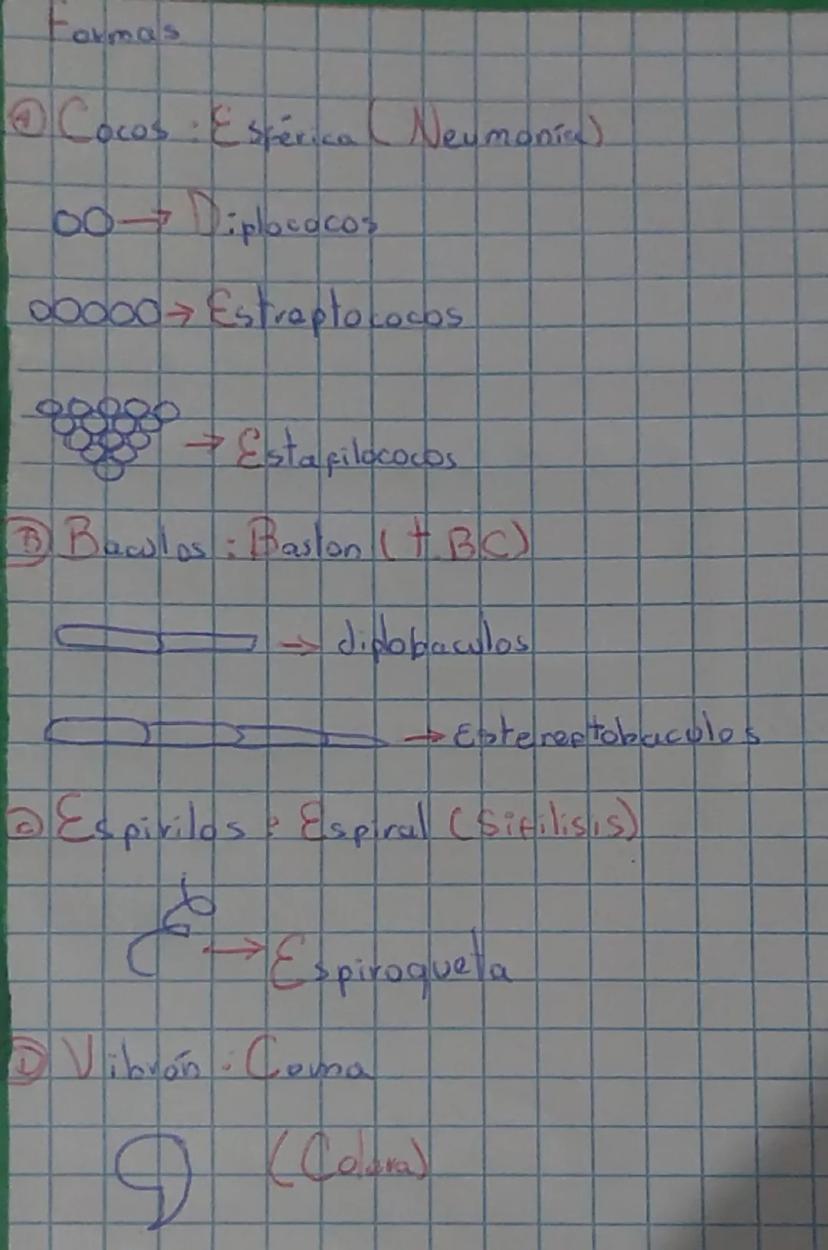 Formas
A Cocos : Esférica (Neumonía)
→ Diplococos
→ Estraptococos
→ Estafilococos
B Baculos : Baston (TBC)
→ diplobaculos
→ Estereptobaculos
C Espirilos : Espiral (Sifilisis)
→ Espiroqueta
D Vibrón : Coma
(Colera)